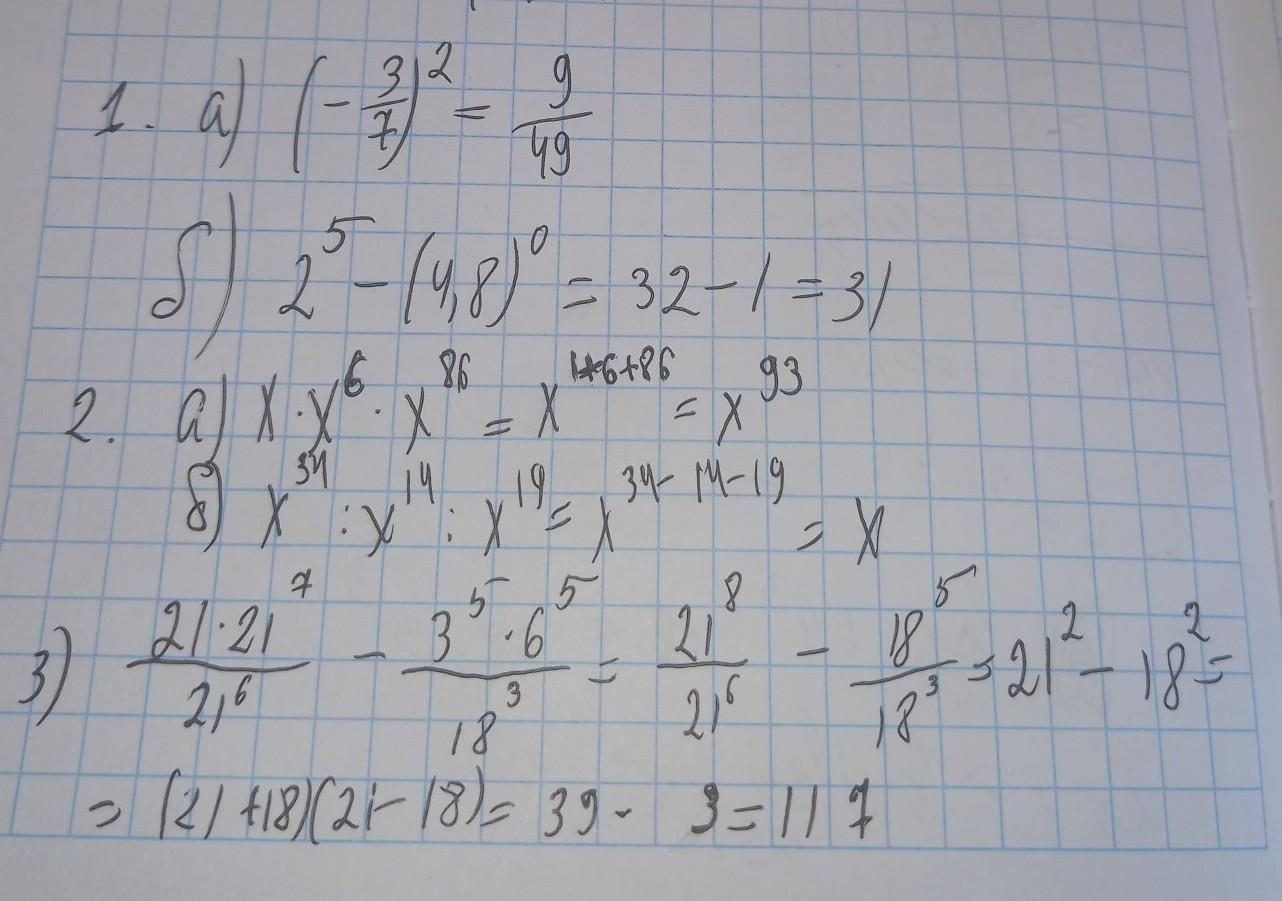 1. а) (-3/7)² = 9/49
б) 2⁵ - (4,8)⁰ = 32 - 1 = 31
2. а) x · x⁶ · x⁸⁶ = x¹⁺⁶⁺⁸⁶ = x⁹³
б) x³⁴ : x¹⁴ : x¹⁹ = x³⁴⁻¹⁴⁻¹⁹ = x
3) 21·21⁷/21⁶ - 3⁵·6⁵/18³ = 21⁸/21⁶ - 18⁵/18³ = 21² - 18² =
= (21+18)(21-18) = 39 · 3 = 117